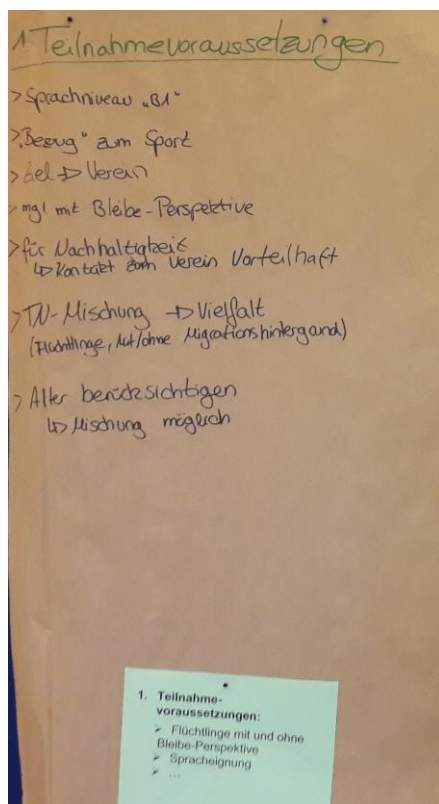 1 Teilnahmevoraussetzungen
> Sprachniveau „B1"
> „Bezug" zum Sport
> Verein
> mgl mit Bleibe-Perspektive
> für Nachhaltigkeit
↳ Kontakt zum Verein Vorteilhaft
> TN-Mischung → Vielfalt
(Flüchtlinge, Mit/ohne Migrationshintergrund)
> Alter berücksichtigen
↳ Mischung möglich
1. Teilnahme-
voraussetzungen:
➢ Flüchtlinge mit und ohne
Bleibe-Perspektive
➢ Spracheignung
➢ ...